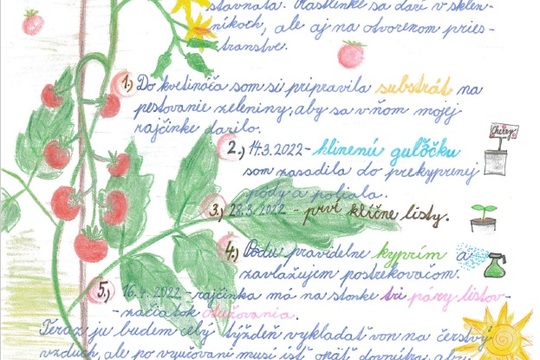 šťavnatá. Rastlinke sa darí v sklen-
níkoch, ale aj na otvorenom pries-
transtve.
1.) Do kvetináča som si pripravila substrát na
pestovanie zeleniny, aby sa v ňom mojej
rajčinke darilo.
2.) 14.3.2022 - hlinenú guľôčku
som nasadila do prekyprenej
pôdy a poliala.
3.) 28.3.2022 - prvé klíčne listy.
4.) Pôdu pravidelne kyprím a
zavlažujem postrekovačom.
5.) 16.4.2022 - rajčinka má na stonke tri páry listov-
- začiatok
Teraz ju budem celý týždeň vykladať von na čerstvý
vzduch, ale po vyučovaní musí ísť opäť dovnútra, aby